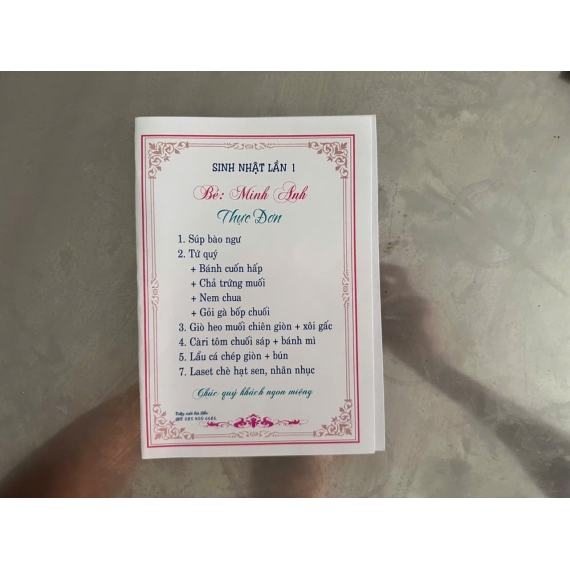 SINH NHẬT LẦN 1
Bé: Minh Anh
Thực Đơn
1. Súp bào ngư
2. Tứ quý
+ Bánh cuốn hấp
+ Chả trứng muối
+ Nem chua
+ Gỏi gà bốp chuối
3. Giò heo muối chiên giòn + xôi gấc
4. Càri tôm chuối sáp + bánh mì
5. Lẩu cá chép giòn + bún
7. Laset chè hạt sen, nhãn nhục
Chúc quý khách ngon miệng